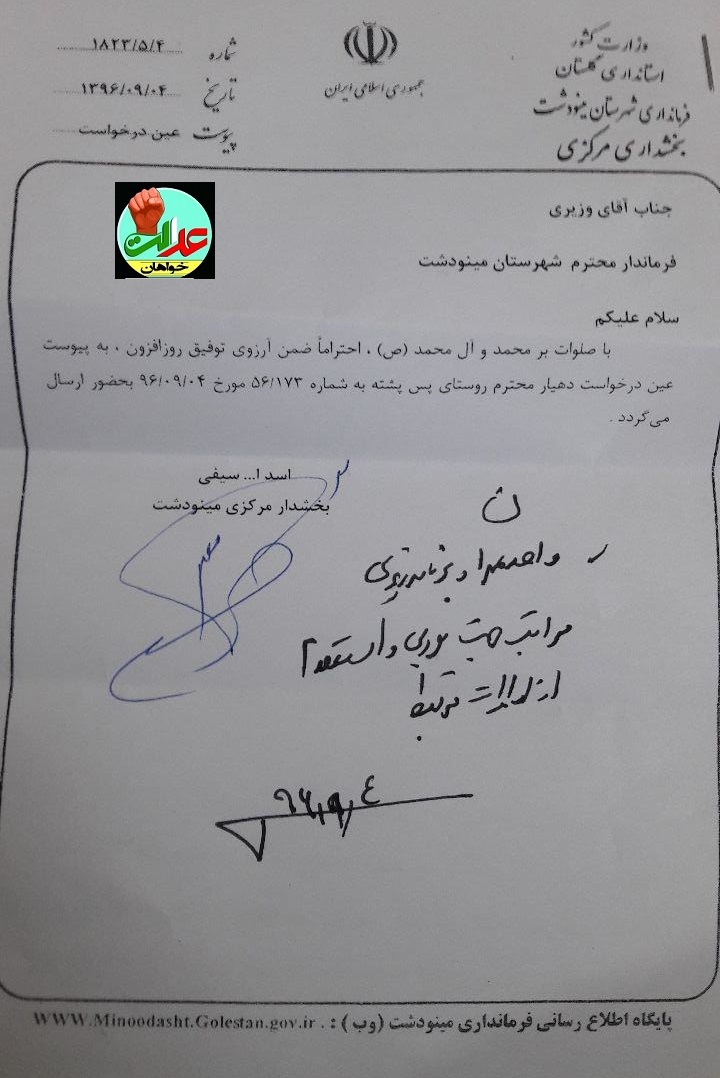 وزارت کشور
استانداری گلستان
فرمانداری شهرستان مینودشت
بخشداری مرکزی
جمهوری اسلامی ایران
شماره ۱۸۲۳/۵/۴
تاریخ ۱۳۹۶/۰۹/۰۴
پیوست عین درخواست
عدالت
خواهان
جناب آقای وزیری
فرماندار محترم شهرستان مینودشت
سلام علیکم
با صلوات بر محمد و آل محمد (ص) ، احتراماً ضمن آرزوی توفیق روزافزون ، به پیوست
عین درخواست دهیار محترم روستای پس پشته به شماره ۵۶/۱۷۳ مورخ ۹۶/۰۹/۰۴ بحضور ارسال
می‌گردد .
اسد ا... سیفی
بخشدار مرکزی مینودشت
واحد و برنامه‌ریزی
مراتب جهت بررسی و استعلام
از ادارات مرتبط
۹۶,۹,٤
پایگاه اطلاع رسانی فرمانداری مینودشت (وب ) : . WWW.Minoodasht.Golestan.gov.ir